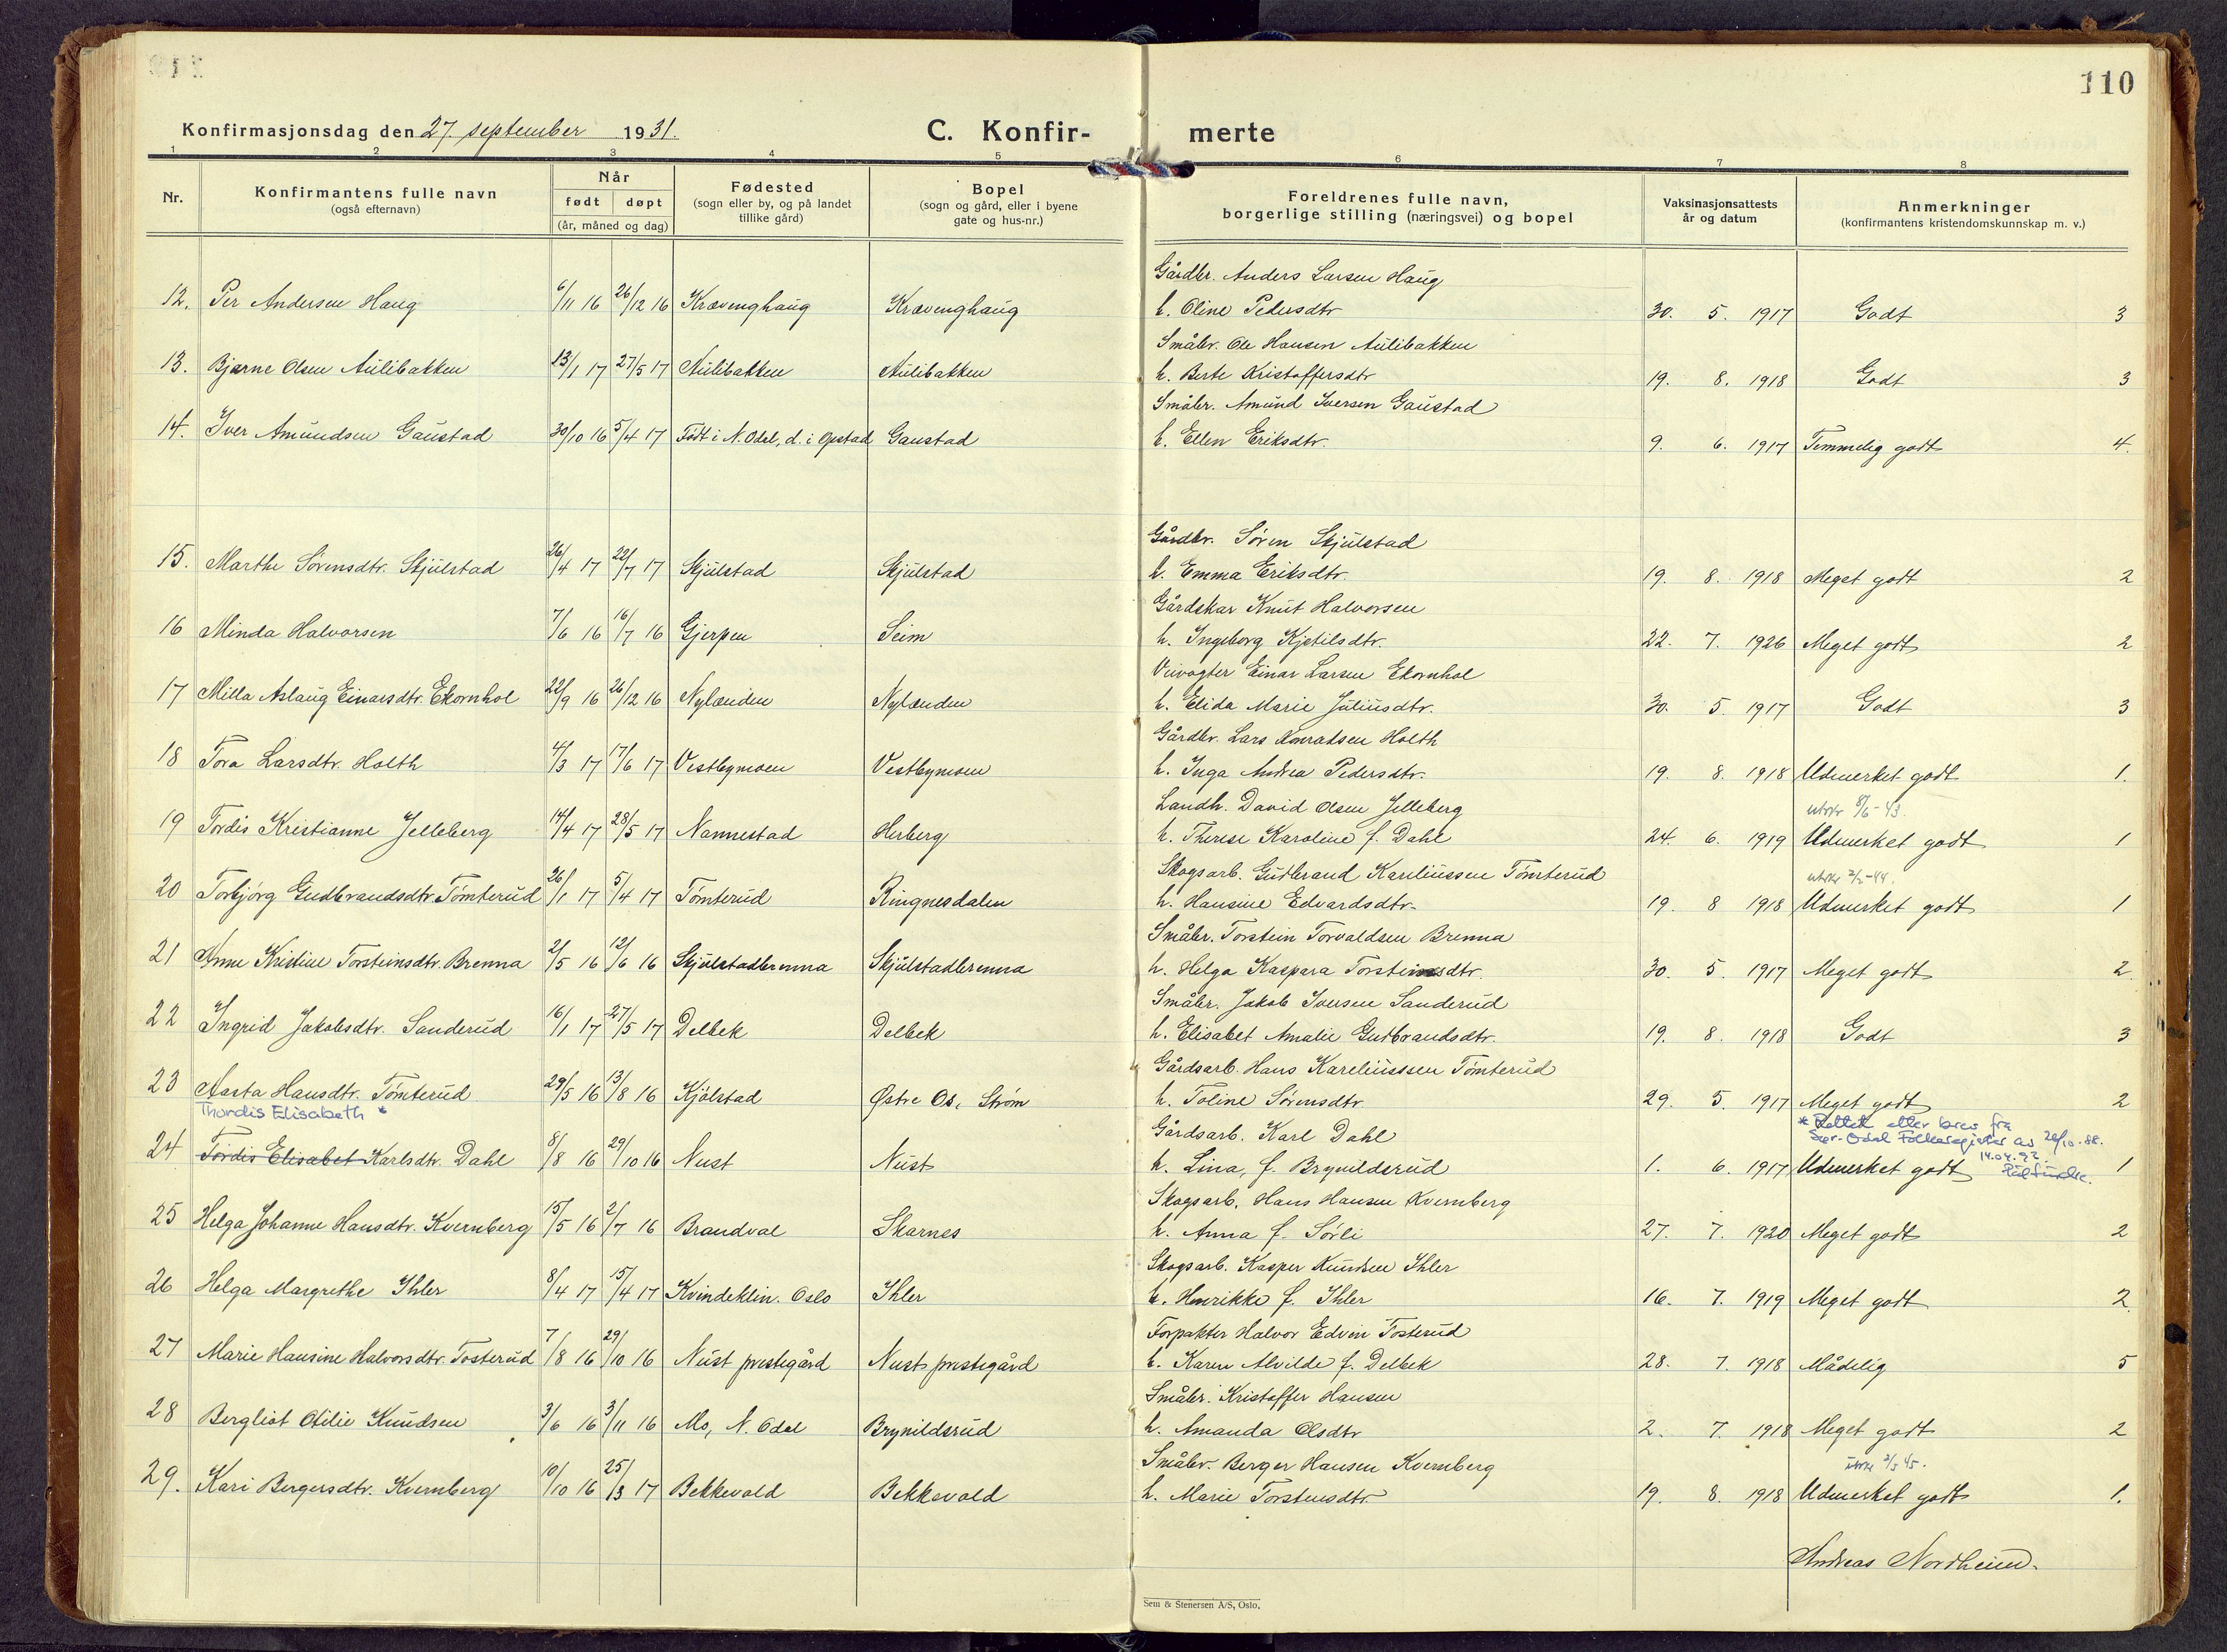 110
Konfirmasjonsdag den 27. september 1931.
C. Konfir- merte
1 2 3 4 5 6 7 8
Nr.
Konfirmantens fulle navn
(også efternavn)
Når
født døpt
(år, måned og dag)
Fødested
(sogn eller by, og på landet
tillike gård)
Bopel
(sogn og gård, eller i byene
gate og hus-nr.)
Foreldrenes fulle navn,
borgerlige stilling (næringsvei) og bopel
Vaksinasjonsattests
år og datum
Anmerkninger
(konfirmantens kristendomskunnskap m. v.)
Gårdbr. Anders Larsen Haug
12. Per Andersen Haug 6/11 16 26/12 16 Kravenghaug Kravenghaug h. Oline Pedersdtr 30. 5. 1917 Godt 3
Småbr. Ole Hansen Aulibakken
13. Bjarne Olsen Aulibakken 13/1 17 27/5 17 Aulibakken Aulibakken h. Berte Kristoffersdtr 19. 8. 1918 Godt 3
Småbr. Amund Iversen Gaustad
14. Iver Amundsen Gaustad 30/10 16 5/4 17 Født i N. Odal, d. i Opstad Gaustad h. Ellen Eriksdtr. 9. 6. 1917 Temmelig godt 4.
Gårdbr. Søren Skjulstad
15. Marthe Sørensdtr. Skjulstad 26/4 17 22/7 17 Skjulstad Skjulstad h. Emma Eriksdtr. 19. 8. 1918 Meget godt 2
Gårdskar Knut Halvorsen
16 Minda Halvorsen 7/6 16 16/7 16 Gjerpen Seim h. Ingeborg Kjetilsdtr. 22. 7. 1926 Meget godt 2
Veivogter Einar Larsen Ekornhol
17 Milla Aslaug Einarsdtr. Ekornhol 22/9 16 26/12 16 Nylænden Nylænden h. Elida Marie Juliusdtr. 30. 5. 1917 Godt 3
Gårdbr. Lars Konradsen Holth
18 Tora Larsdtr. Holth 4/3 17 17/6 17 Vestbymoen Vestbymoen h. Inga Andrea Pedersdtr. 19. 8. 1918 Udmerket godt 1.
Landh. David Olsen Jelleberg 8/6-43.
19 Tordis Kristianne Jelleberg 14/4 17 28/5 17 Nannestad Herberg h. Therese Karoline f. Dahl 24. 6. 1919 Udmerket godt 1
Skogsarb. Gudbrand Kareliussen Tømterud 2/2-44.
20 Torbjørg Gudbrandsdtr. Tømterud 26/1 17 5/4 17 Tømterud Ringnesdalen h. Hansine Edvardsdtr. 19. 8 1918 Udmerket godt 1
Småbr. Torstein Torvaldsen Brenna
21 Anne Kristine Torsteinsdtr. Brenna 2/5 16 12/6 16 Skjulstadbrenna Skjulstadbrenna h. Helga Kaspara Torsteinsdtr. 30. 5. 1917 Meget godt 2.
Småbr. Jakob Iversen Sanderud
22 Ingrid Jakobsdtr. Sanderud 16/1 17 27/5 17 Delbek Delbek h. Elisabet Amalie Gudbrandsdtr. 19. 8. 1918 Godt 3
Gårdsarb. Hans Kareliusssen Tømterud
23 Aasta Hansdtr. Tømterud 29/5 16 13/8 16 Kjølstad Østre Os, Strøm h. Toline Sørensdtr 29. 5. 1917 Meget godt 2
Thordis Elisabeth *
* Rettet etter brev fra
Gårdsarb. Karl Dahl
Sør-Odal Folkeregister av 20/10-88.
14.04.92
24 Tordis Elisabet Karlsdtr. Dahl 8/8 16 29/10 16 Nust Nust h. Lina, f. Brynilderud 1. 6. 1917 Udmerket godt 1
Skogsarb. Hans Hansen Kvernberg
25 Helga Johanne Hansdtr. Kvernberg 15/5 16 2/7 16 Brandval Skarnes h. Anna f. Sørli 27. 7. 1920 Meget godt 2
Skogsarb. Kasper Knudsen Ihler
26 Helga Margrethe Ihler 8/4 17 15/4 17 Kvindeklin. Oslo Ihler h. Henrikke f. Ihler 16. 7. 1919 Meget godt 2
Forpakter Halvor Edvin Tosterud
27 Marie Hansine Halvorsdtr. Tosterud 7/8 16 29/10 16 Nust prestegård Nust prestegård h. Karen Alvilde f. Delbek 28. 7. 1918 Mådelig 5
Småbr. Kristoffer Hansen
28 Bergliot Otilie Knudsen 3/6 16 3/11 16 Mo, N. Odal Brynildsrud h. Amanda Olsdtr 2. 7. 1918 Meget godt 2
Småbr. Berger Hansen Kvernberg 2/3 45.
29. Kari Bergersdtr. Kvernberg 10/10 16 25/3 17 Bekkevold Bekkevold h. Marie Torstensdtr. 19. 8. 1918 Udmerket godt 1.
Andreas Nordheim.
Sem & Stenersen A/S, Oslo.